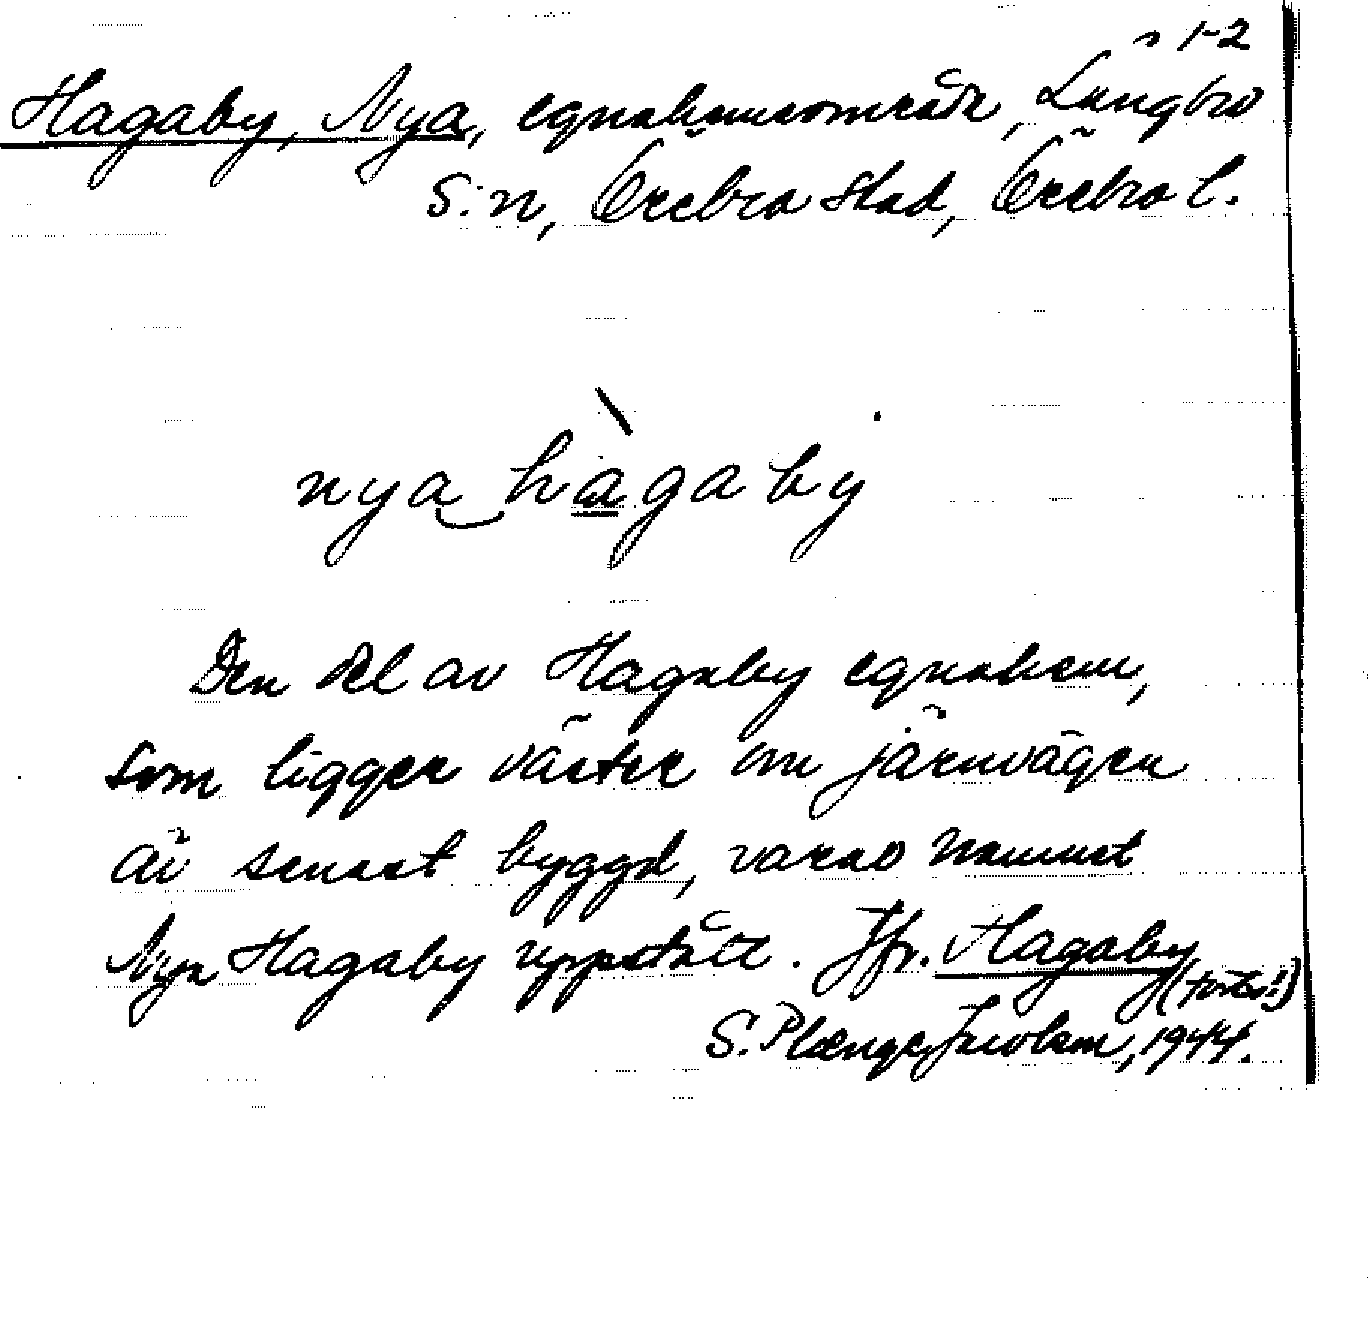 1-2
Hagaby, Nya, egnahemsområde, Längbro
S:n, Örebro stad, Örebro l.
nya hàgaby
Den del av Hagaby egnahem,
som ligger väster om järnvägen
är senast byggd, varav namnet
Nya Hagaby uppstått. Jfr. Hagaby
S. Plænge Jacobson, 1944.